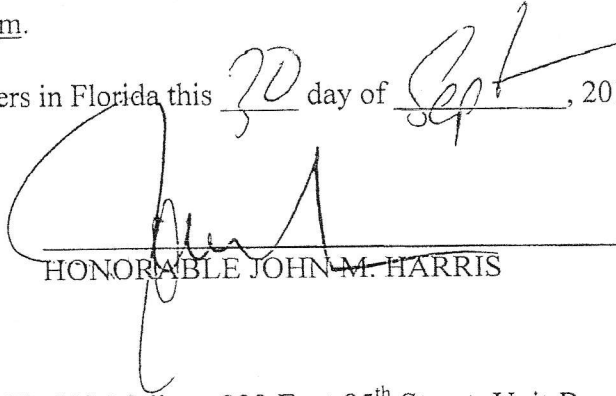 m.
ers in Florida this 30 day of Sept, 20
HONORABLE JOHN M. HARRIS
th